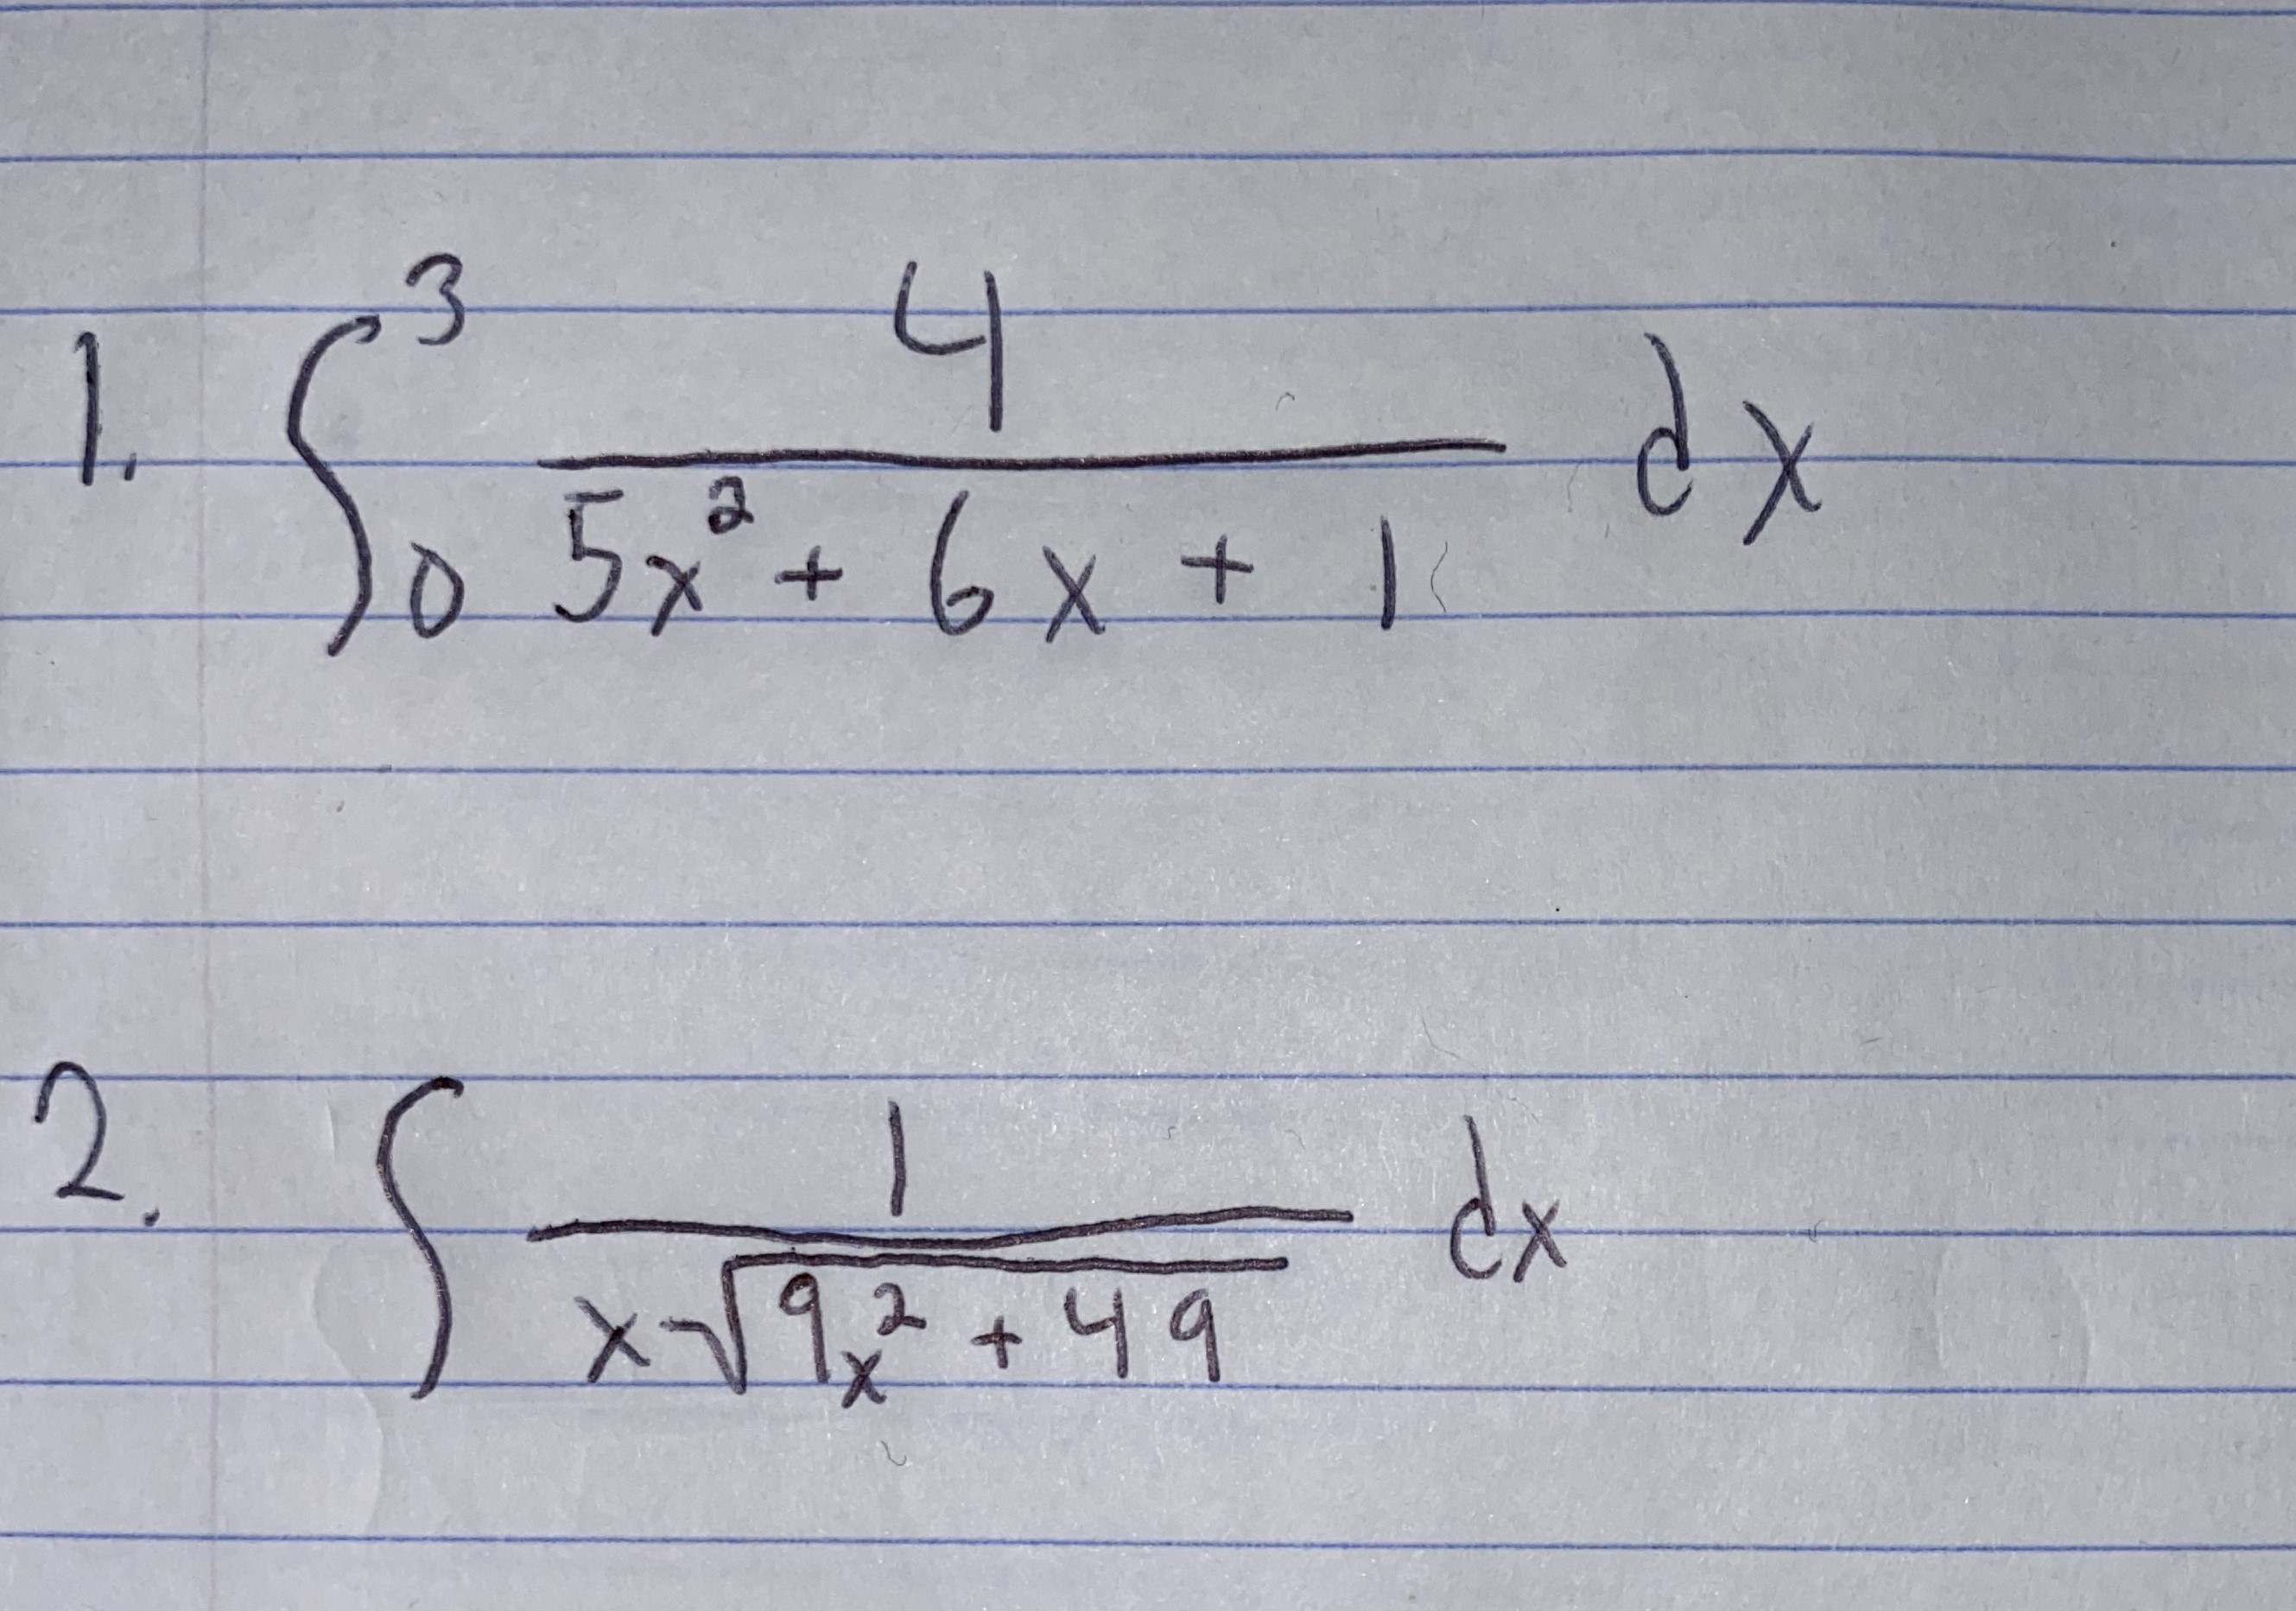 1. ∫₀³ 4/(5x² + 6x + 1) dx
2. ∫ 1/(x√(9x² + 49)) dx